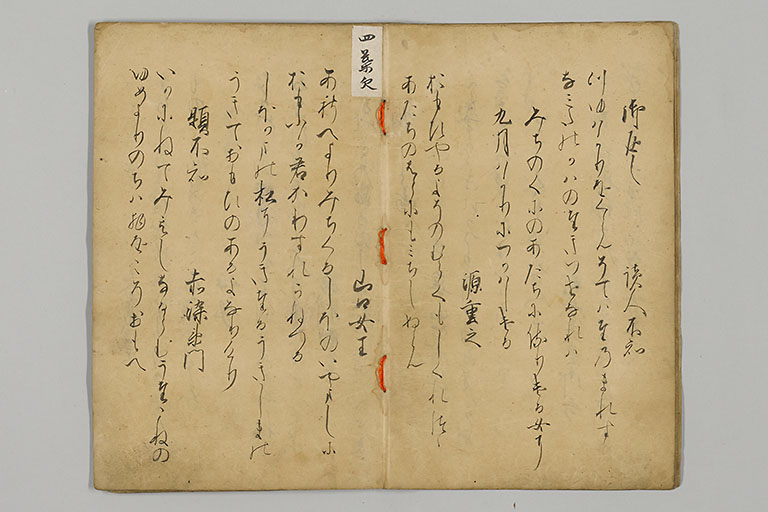 御返し　読人不知
つゆはかりをくらんそてはたのまれす
なみたのかはのたきつせなれは
みちのくにのあたちに侍りける女に
九月はかりにつかはしける
源重之
おもひやるよそのむらくもしくれつゝ
あたちのはらにもみちしぬらん
四葉欠
山口女王
あしへよりみちくるしほのいやましに
おもふか君かわすれかねつる
しほかまの松にうきたるうきしまの
うきておもひのあるよなりけり
題不知　赤染衛門
いかにねてみえしなるらむうたゝねの
ゆめよりのちは物をこそおもへ